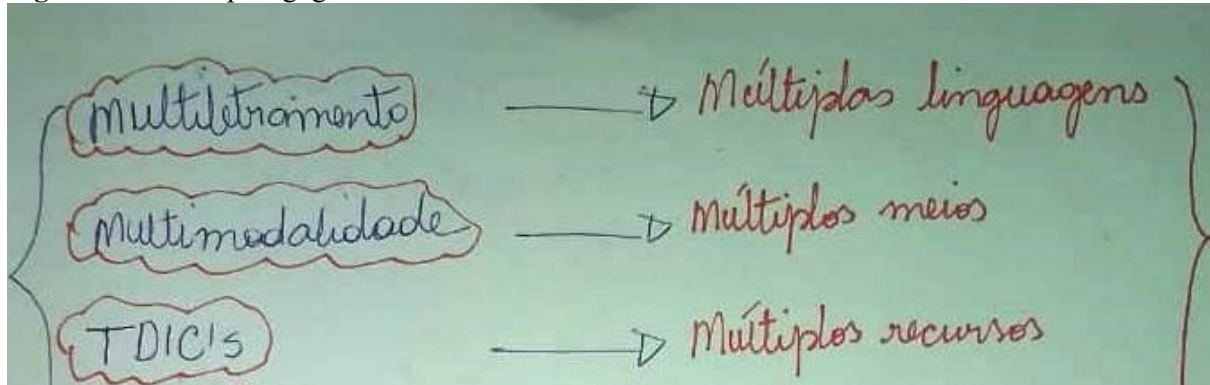 Multiletramento → Múltiplas linguagens
Multimodalidade → Múltiplos meios
TDIC's → Múltiplos recursos